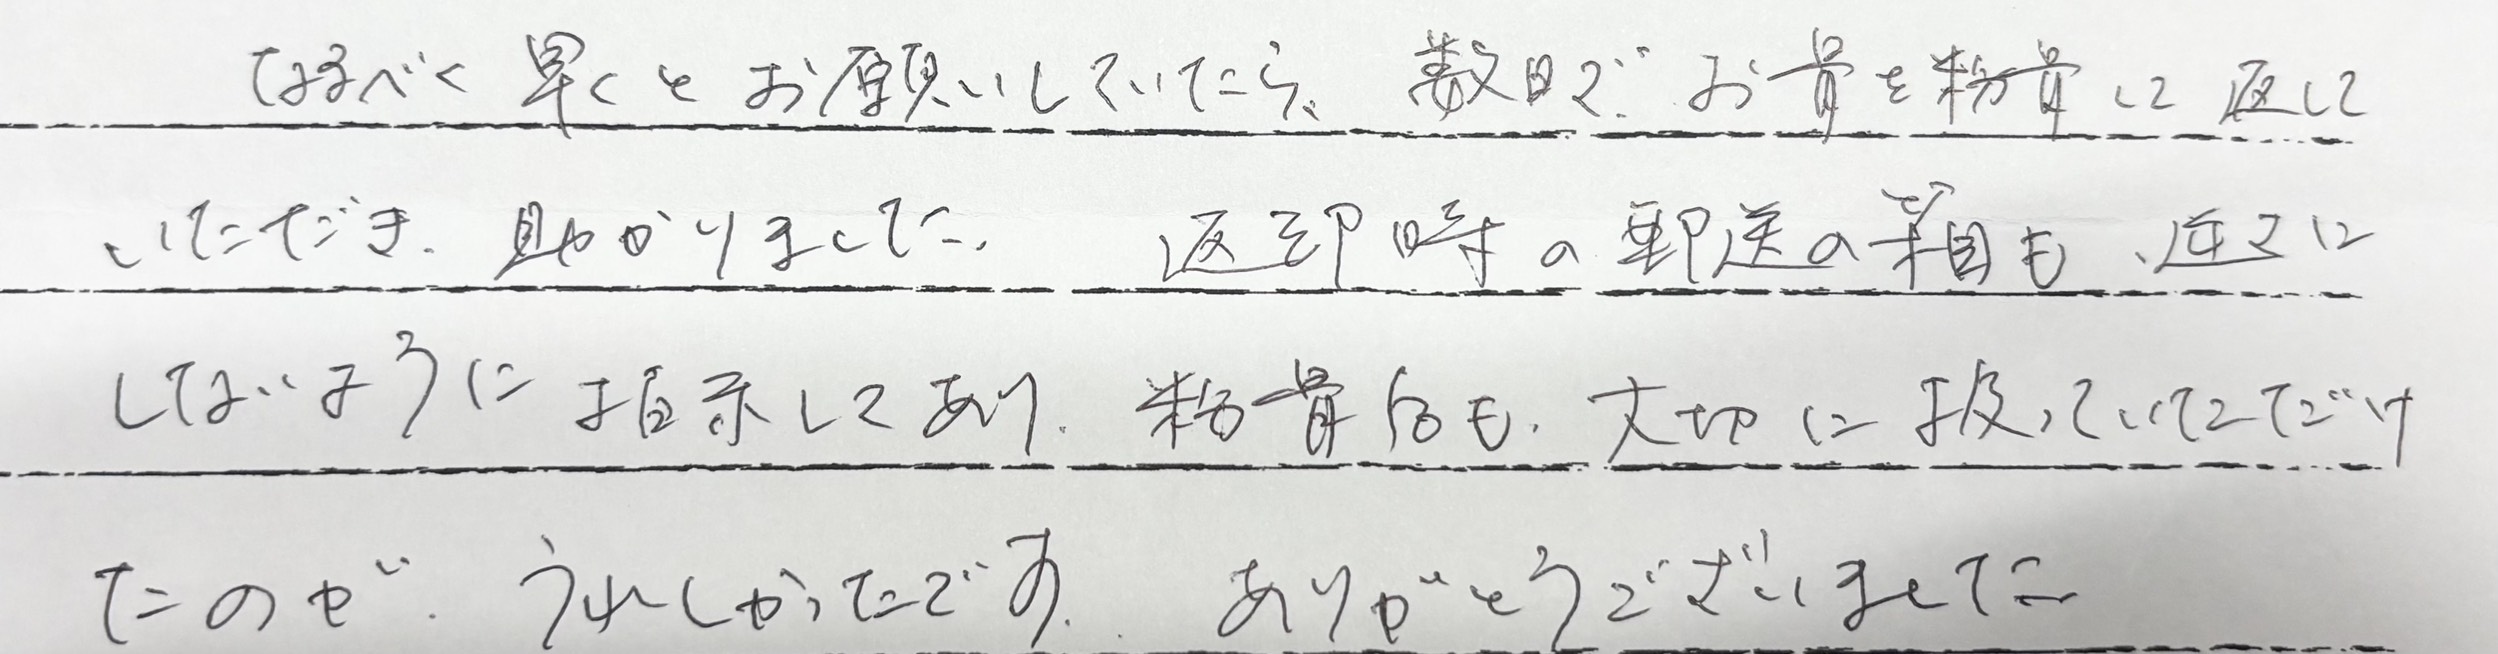 なるべく早くとお願いしていたら、数日で、お骨を粉骨に返して
いただき、助かりました。 返却時の郵送の箱も、逆さに
しないように指示してあり、粉骨后も、大切に扱っていただけ
たのが、うれしかったです。 ありがとうございました